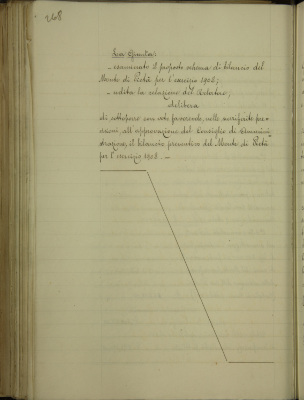 268
La Giunta:
- esaminato il proposto schema di bilancio del
Monte di Pietà per l'esercizio 1908;
- udita la relazione del
delibera
di sottoporre con voto favorevole, nelle surriferite
all'approvazione del Consiglio di Ammini
strazione, il bilancio preventivo del Monte di Pietà
per l'esercizio 1908. -